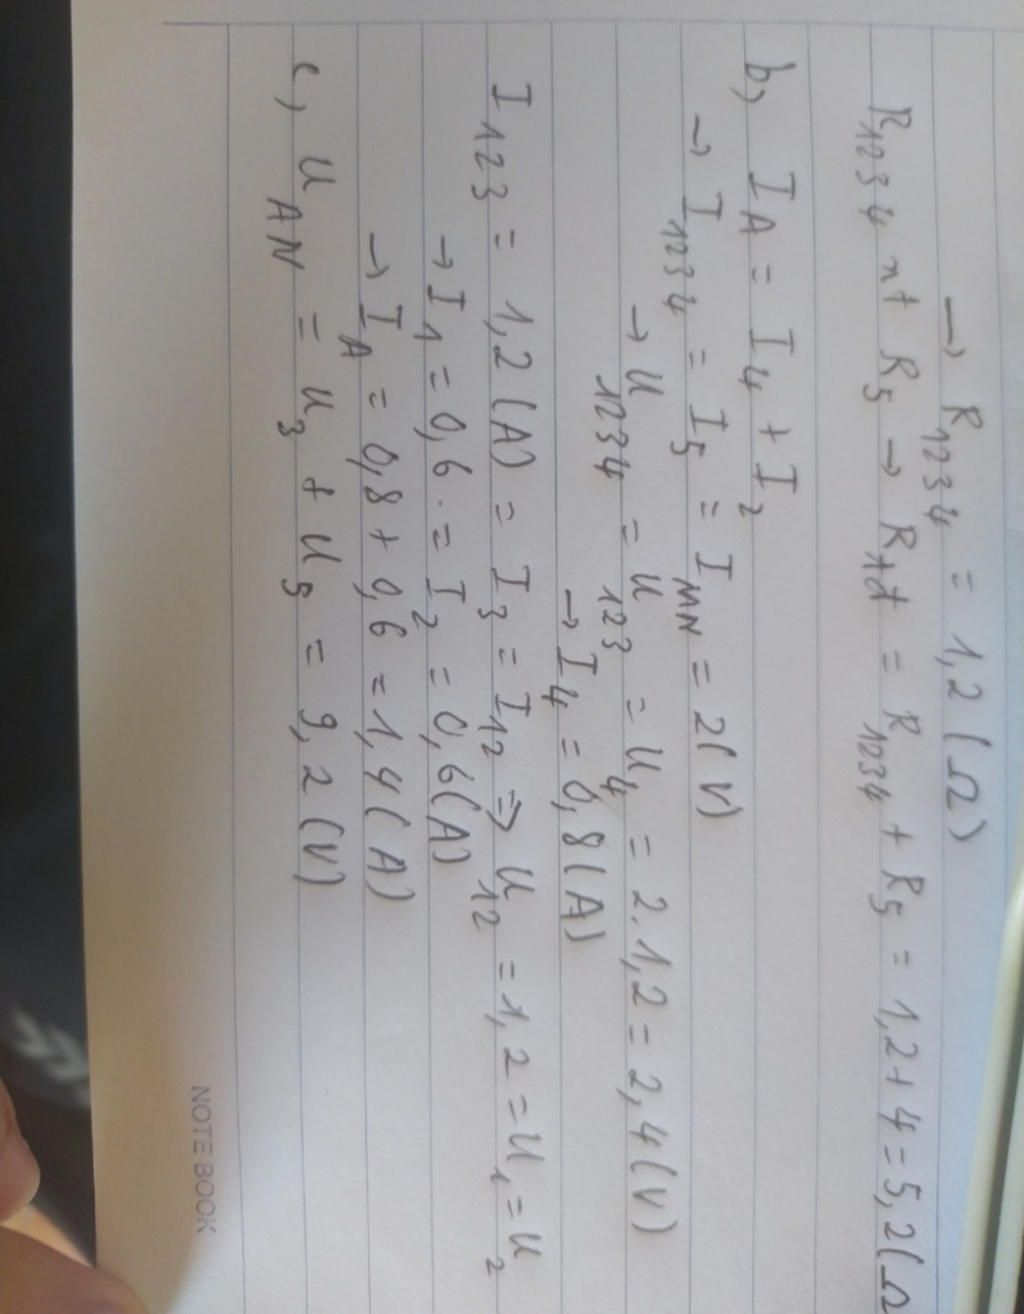 → R1234 = 1,2 (Ω)
R1234 nt R5 → Rtđ = R1234 + R5 = 1,2 + 4 = 5,2 (Ω
b, IA = I4 + I2
→ I1234 = I5 = IMN = 2(V)
→ U1234 = U123 = U4 = 2.1,2 = 2,4 (V)
→ I4 = 0,8 (A)
I123 = 1,2 (A) = I3 = I12 ⇒ U12 = 1,2 = U1 = U2
→ I1 = 0,6. = I2 = 0,6(A)
→ IA = 0,8 + 0,6 = 1,4 (A)
c, UAN = U3 + U5 = 9,2 (V)
NOTE BOOK